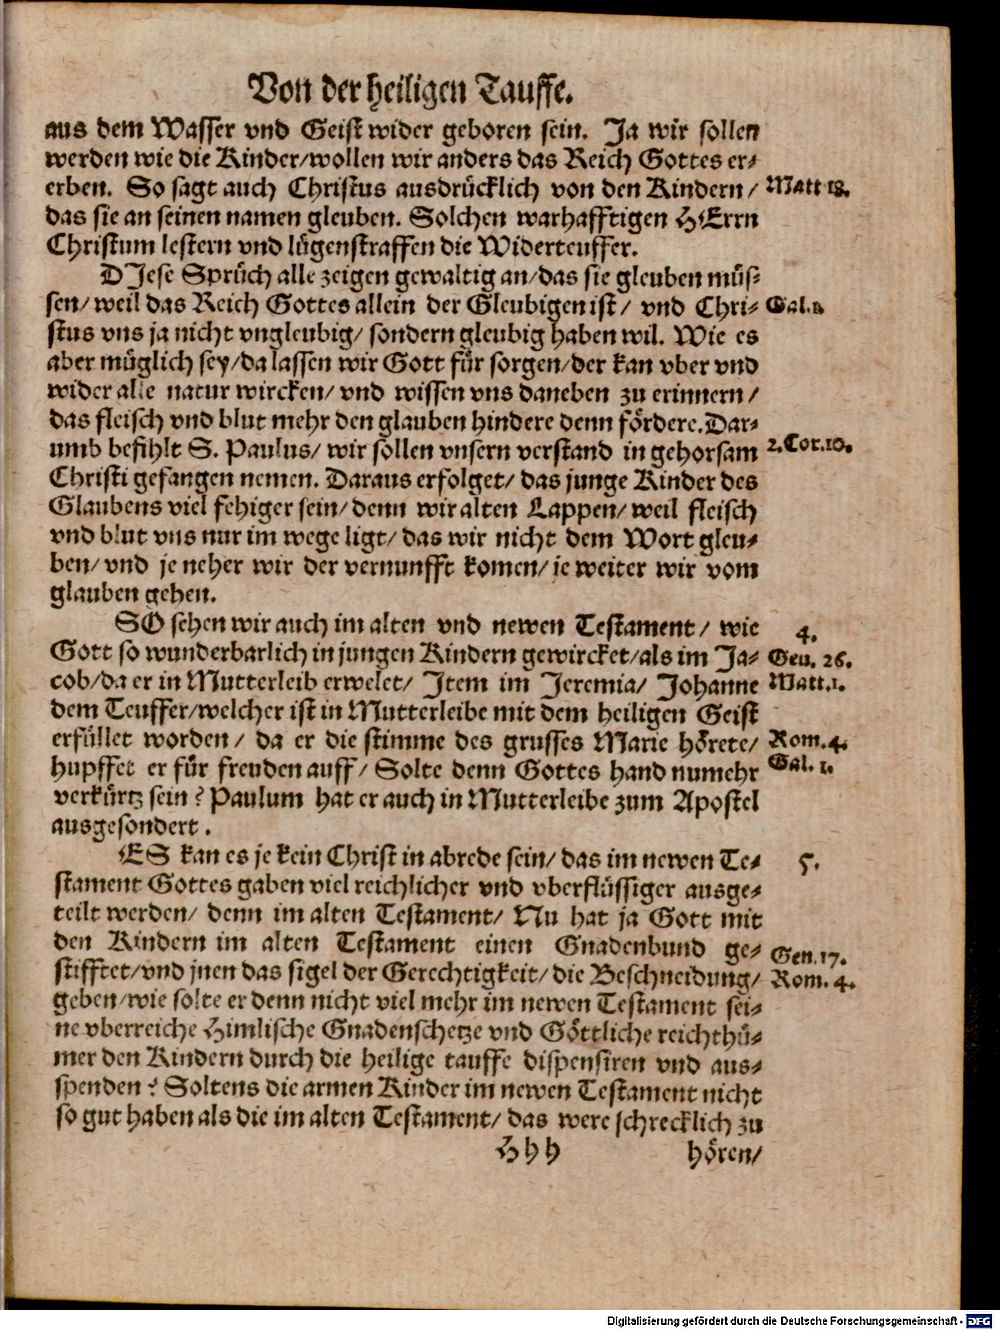 Von der heiligen Tauffe.
aus dem Wasser vnd Geist wider geboren sein. Ja wir sollen
werden wie die Kinder/wollen wir anders das Reich Gottes er-
erben. So sagt auch Christus ausdrücklich von den Kindern/ Matt 18.
das sie an seinen namen gleuben. Solchen warhafftigen HErrn
Christum lestern vnd lügenstraffen die Widerteuffer.
DJese Sprüch alle zeigen gewaltig an/das sie gleuben müs-
sen/ weil das Reich Gottes allein der Gleubigen ist/ vnd Chri- Gal.
stus vns ja nicht vngleubig/ sondern gleubig haben wil. Wie es
aber müglich sey/da lassen wir Gott für sorgen/der kan vber vnd
wider alle natur wircken/ vnd wissen vns daneben zu erinnern/
das fleisch vnd blut mehr den glauben hindere denn fördere. Dar-
umb befihlt S. Paulus/ wir sollen vnsern verstand in gehorsam 2. Cor. 10.
Christi gefangen nemen. Daraus erfolget/ das junge Kinder des
Glaubens viel fehiger sein/ denn wir alten Lappen/ weil fleisch
vnd blut vns nur im wege ligt/ das wir nicht dem Wort gleu-
ben/ vnd je neher wir der vernunfft komen/ je weiter wir vom
glauben gehen.
SO sehen wir auch im alten vnd newen Testament/ wie 4.
Gott so wunderbarlich in jungen Kindern gewircket/als im Ja- Gen. 26.
cob/da er in Mutterleib erwelet/ Jtem im Jeremia/ Johanne Matt. 1.
dem Teuffer/welcher ist in Mutterleibe mit dem heiligen Geist
erfüllet worden/ da er die stimme des grusses Marie hörete/ Rom. 4.
hupffet er für freuden auff/ Solte denn Gottes hand numehr Gal. 1.
verkürtz sein? Paulum hat er auch in Mutterleibe zum Apostel
ausgesondert.
ES kan es je kein Christ in abrede sein/ das im newen Te- 5.
stament Gottes gaben viel reichlicher vnd vberflüssiger ausge-
teilt werden/ denn im alten Testament/ Nu hat ja Gott mit
den Kindern im alten Testament einen Gnadenbund ge- Gen. 17.
stifftet/vnd jnen das sigel der Gerechtigkeit/ die Beschneidung/ Rom. 4.
geben/wie solte er denn nicht viel mehr im newen Testament sei-
ne vberreiche Himlische Gnadenschetze vnd Göttliche reichthü-
mer den Kindern durch die heilige tauffe dispensiren vnd aus-
spenden? Soltens die armen Kinder im newen Testament nicht
so gut haben als die im alten Testament/ das were schrecklich zu
Hhh hören/
Digitalisierung gefördert durch die Deutsche Forschungsgemeinschaft - DFG